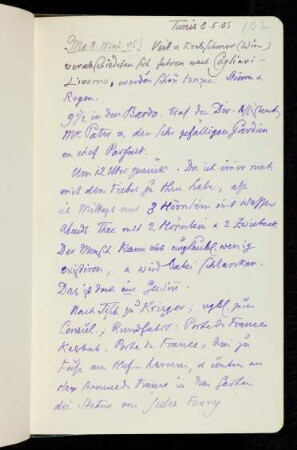 Tunis 8.5.05 102
[Mo. 8. Mai 05] Veit u. Kretschmer (Wien)
verabschiedeten sich fahren nach Cagliari-
Livorno, werden schön tanzen. Sturm u.
Regen.
9 1/2 in den Bardo. traf den Dir. Assistent,
Mr. u. den sehr gefälligen Gardien
en chef Parfait.
Um 12 Uhr zurück. Da ich immer noch
mit dem Fieber zu thun habe, aß
ich Mittags nur 3 Hörnlein mit Wasser
Abends Thee mit 2 Hörnlein u. 2 Zwieback
Der Mensch kann doch unglaubl. wenig
existiren, u. wird dabei schlanker.
Das ist doch ein Gewinn.
Nach Tisch zu Krieger; vgbl. zum
Consul; Rundfahrt: Porte de France
Kasbah. Porte de France, dann zu
Fuße ans Hafen u.
die Avenue de France in den Garten
die Statue von Jules Ferry